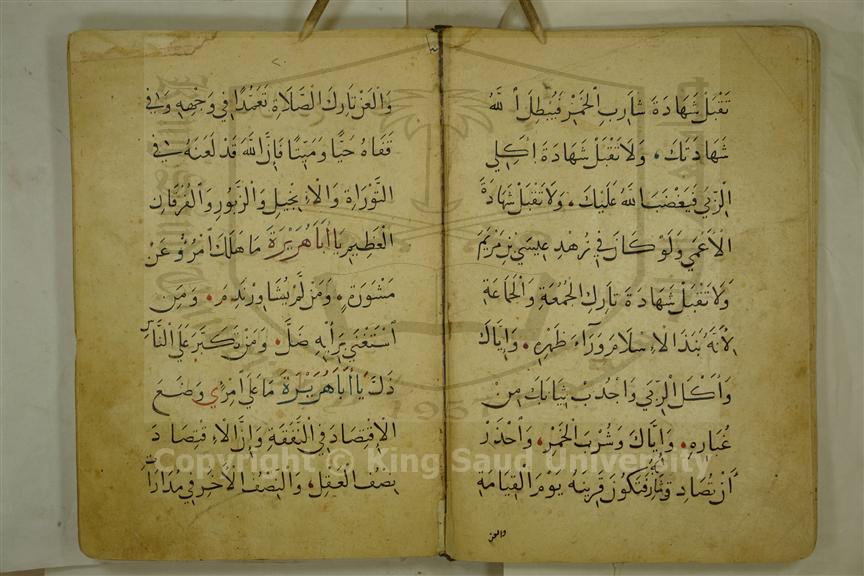 تَقْبَلْ شَهَادَةَ شَارِبِ الْخَمْرِ فَيُبْطِلُ اللَّهُ
شَهَادَتَكَ، وَلَا تَقْبَلْ شَهَادَةَ اٰكِلِي
الرِّبٰي فَيَغْضَبَ اللَّهُ عَلَيْكَ، وَلَا تَقْبَلْ شَهَادَةَ
الْأَعْمٰي وَلَوْ كَانَ فِي زُهْدِ عِيسَي بْنِ مَرْيَمَ
وَلَا تَقْبَلْ شَهَادَةَ تَارِكِ الْجُمُعَةِ وَالْجَمَاعَةِ
لِأَنَّهُ نَبَذَ الْإِسْلَامَ وَرَآءَ ظَهْرِهِ، وَاِيَّاكَ
وَأَكْلَ الرِّبٰي وَاجْذِبْ ثِيَابَكَ مِنْ
غُبَارِهِ، وَاِيَّاكَ وَشُرْبَ الْخَمْرِ، وَاحْذَرْ
أَنْ تُصَادِقَ شَارِبَهُ فَتَكُونَ قَرِينَهُ يَوْمَ الْقِيَامَةِ
والعن
وَالْعَنْ تَارِكَ الصَّلَاةِ تَعَمُّدًا فِي وَجْهِهِ وَفِي
قَفَاهُ حَيًّا وَمَيِّتًا فَإِنَّ اللَّهَ قَدْ لَعَنَهُ فِي
التَّوْرَاةِ وَالْإِنْجِيلِ وَالزَّبُورِ وَالْفُرْقَانِ
الْعَظِيمِ يَا أَبَا هُرَيْرَةَ مَا هَلَكَ امْرُؤٌ عَنْ
مَشْوَرَةٍ، وَمَنْ لَمْ يُشَاوِرْ نَدِمَ، وَمَنِ
اسْتَغْنٰي بِرَأْيِهِ ضَلَّ، وَمَنْ تَكَبَّرَ عَلَي النَّاسِ
ذَلَّ يَا أَبَا هُرَيْرَةَ مَا عَلَي امْرِئٍ وَضَعَ
الْإِقْتِصَادَ فِي النَّفَقَةِ وَإِنَّ الْاِقْتِصَادَ
نِصْفُ الْعَقْلِ، وَالنِّصْفُ الْأٰخَرُ فِي مُدَارَاتِ
Copyright © King Saud University